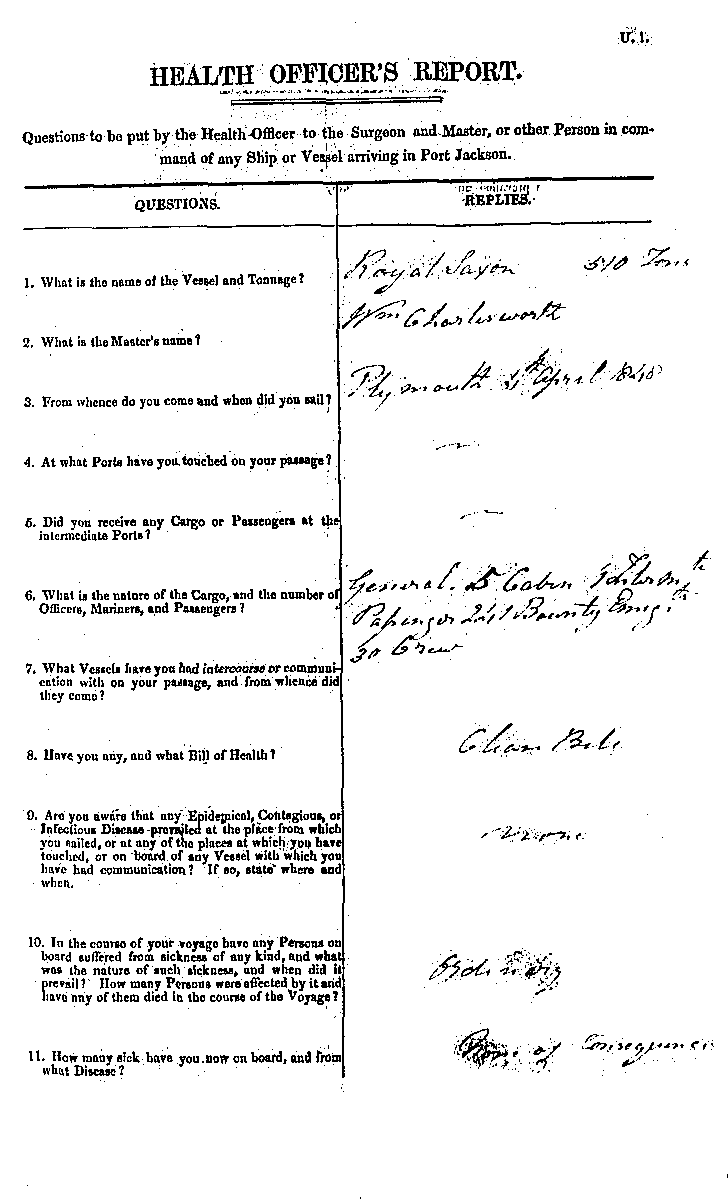 U. 1.
HEALTH OFFICER'S REPORT.
Questions to be put by the Health Officer to the Surgeon and Master, or other Person in com-
mand of any Ship or Vessel arriving in Port Jackson.
QUESTIONS.
REPLIES.
1. What is the name of the Vessel and Tonnage?
Royal Saxon 510 Tons
2. What is the Master's name?
Wm Charlesworth
3. From whence do you come and when did you sail?
Plymouth April 1840
4. At what Ports have you touched on your passage?
—
5. Did you receive any Cargo or Passengers at the
intermediate Ports?
—
6. What is the nature of the Cargo, and the number of
Officers, Mariners, and Passengers?
General. 5 Cabin
Passenger 241 Bounty Emigts
30 Crew
7. What Vessels have you had intercourse or communi-
cation with on your passage, and from whence did
they come?
8. Have you any, and what Bill of Health?
Clean Bill
9. Are you aware that any Epidemical, Contagious, or
Infectious Disease prevailed at the place from which
you sailed, or at any of the places at which you have
touched, or on board of any Vessel with which you
have had communication? If so, state where and
when.
None
10. In the course of your voyage have any Persons on
board suffered from sickness of any kind, and what
was the nature of such sickness, and when did it
prevail? How many Persons were affected by it and
have any of them died in the course of the Voyage?
Ordinary
11. How many sick have you now on board, and from
what Disease?
None of Consequence